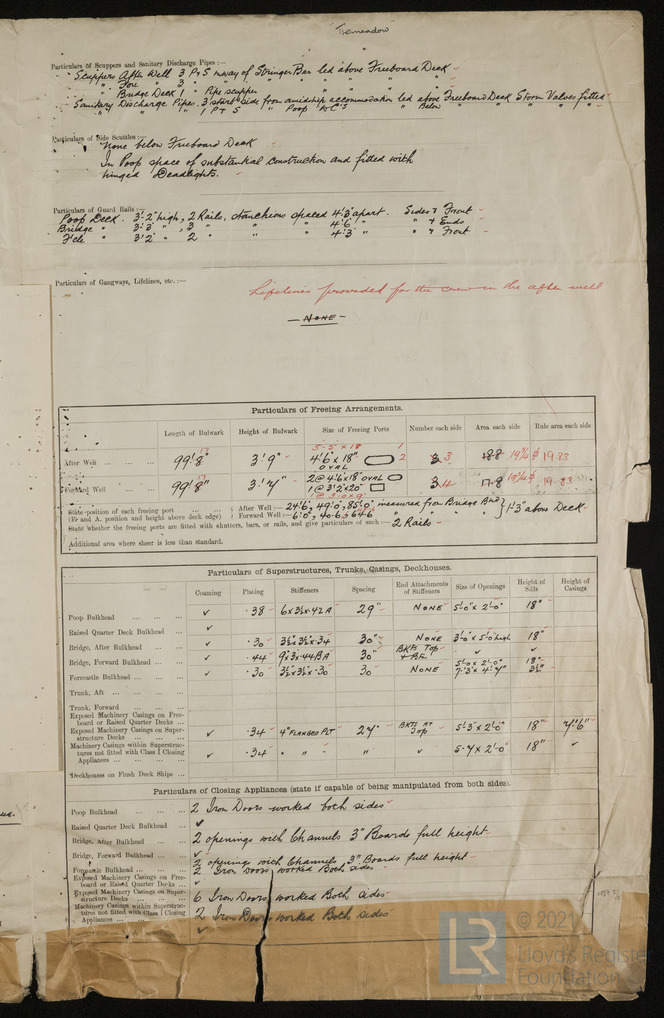 Tremeadow
Particulars of Scuppers and Sanitary Discharge Pipes :—
Scuppers After Well 3 P&S inway of Stringer Bar led above Freeboard Deck
" Fore " 3 " " " " " "
" Bridge Deck 1 " Pipe scupper
Sanitary Discharge Pipes. 3 start side from amidship accommodation led above Freeboard Deck Storm Valves fitted
" " " 1 P & S " Poop W.C's " Below " " " "
Particulars of Side Scuttles :—
None below Freeboard Deck
In Poop space of substantial construction and fitted with
hinged Deadlights.
Particulars of Guard Rails :—
Poop Deck. 3'-2" high, 2 Rails, stanchions spaced 4'.3" apart. Sides & Front
Bridge " 3'-3" " , 3 " " " 4'.6 " & Ends
F'cle " 3'.2 " 2 " " " 4'-3 " " & Front
Particulars of Gangways, Lifelines, etc. :—
Lifelines provided for the crew in the after well
— NONE —
Particulars of Freeing Arrangements.
Length of Bulwark Height of Bulwark Size of Freeing Ports Number each side Area each side Rule area each side
5'-5" x 18" 1
After Well ... ... ... 99'.8" 3'.9" 4'.6" x 18" OVAL 2 3 3 18.8 19.83
Forward Well 99'.8" 3'.4" 2 @ 4'.6 x 18" OVAL 3 4 17.8 19.83
1 @ 3'.2 x 20"
State position of each freeing port ... ... After Well :— 24'.6, 49'.0, 85'.0, measured from Bridge Bhd 1'.3" above Deck
(F. and A. position and height above deck edge) Forward Well :— 6'.0", 40.6, 64'6 " " "
State whether the freeing ports are fitted with shutters, bars, or rails, and give particulars of such :— 2 Rails
Additional area where sheer is less than standard.
Particulars of Superstructures, Trunks, Casings, Deckhouses.
Coaming Plating Stiffeners Spacing End Attachments of Stiffeners Size of Openings Height of Sills Height of Casings
Poop Bulkhead ... ... ... ✓ .38 6 x 3½ x .42 A 29" NONE 5'.0" x 2'.0" 18"
Raised Quarter Deck Bulkhead ... ✓
Bridge, After Bulkhead ... ... ✓ .30 3½" x 3½" x .34 30" NONE 3'.0" x 5'.0" high 18"
Bridge, Forward Bulkhead ... ... ✓ .44 9" x 3 x .44 BA 30" BKTS Top ✓ ✓
Forecastle Bulkhead ... ... ... ✓ .30 3½ x 3½ x .30 30 NONE 5'.0 x 2'.0" 18"
Trunk, Aft ... ... ... ...
Trunk, Forward ... ... ...
Exposed Machinery Casings on Free-
board or Raised Quarter Decks ...
Exposed Machinery Casings on Super-
structure Decks ... ... ... ✓ .34 4" FLANGED PLT 24" BKTS AT Top 5'-3 x 2'.0" 18" 7'6"
Machinery Casings within Superstruc-
tures not fitted with Class I Closing
Appliances ... ... ... ✓ .34 " " " " ✓ 5.4 x 2'.0" 18" ✓
Deckhouses on Flush Deck Ships ...
Particulars of Closing Appliances (state if capable of being manipulated from both sides).
Poop Bulkhead ... ... ... 2 Iron Doors worked both sides
Raised Quarter Deck Bulkhead ... ✓
Bridge, After Bulkhead ... ... 2 openings with Channels 3" Boards full height
Bridge, Forward Bulkhead ... ... ✓
2 openings with Channels 3" Boards full height
Forecastle Bulkhead ... ... ... 2 Iron Doors worked Both sides
Exposed Machinery Casings on Free-
board or Raised Quarter Decks ... ✓
Exposed Machinery Casings on Super-
structure Decks ... ... ... 6 Iron Doors worked Both sides
Machinery Casings within Superstruc-
tures not fitted with Class I Closing
Appliances ... 2 Iron Doors worked Both sides
✓
LR © 2021
Lloyd's Register
Foundation